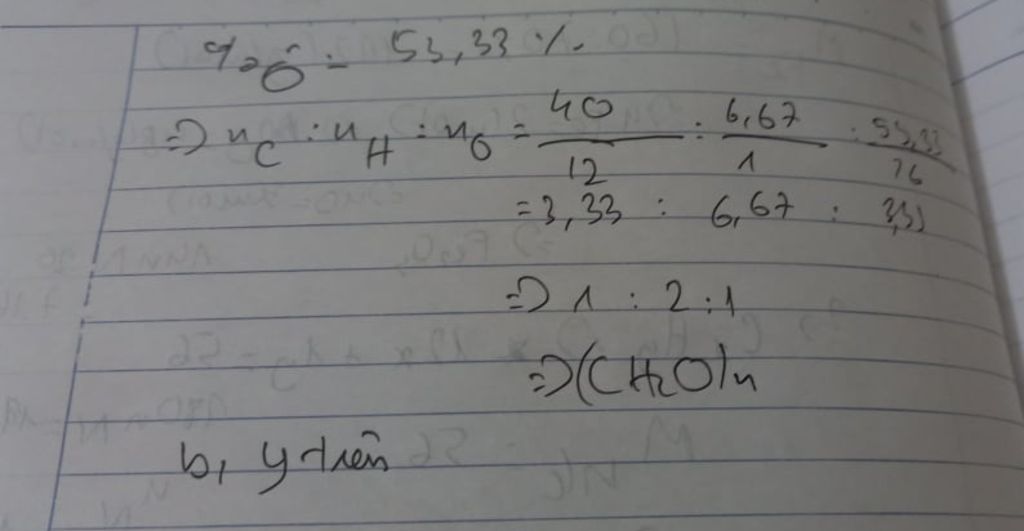 %O = 53,33%
=> nC : nH : nO = 40/12 : 6,67/1 : 53,33/16
= 3,33 : 6,67 : 3,33
=> 1 : 2 : 1
=> (CH2O)n
b, ý trên